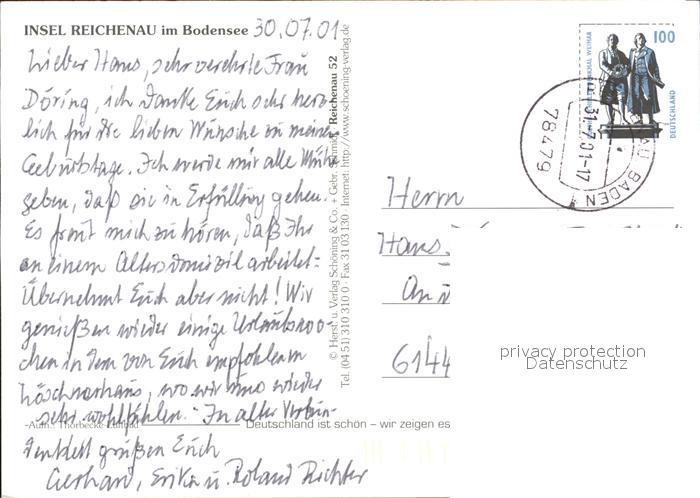 INSEL REICHENAU im Bodensee 30.07.01
Lieber Hans, sehr verehrte Frau
Döring, ich danke Euch sehr herz-
lich für die lieben Wünsche zu meinem
Geburtstage. Ich werde mir alle Mühe
geben, daß sie in Erfüllung gehen.
Es freut mich zu hören, daß Ihr
an einem Altersdomizil arbeitet:
Übernehmt Euch aber nicht! Wir
genießen wieder einige Urlaubswo-
chen in dem von Euch empfohlenen
wo wir uns wieder
sehr wohlfühlen. - In alter Verbun-
denheit grüßen Euch
Gerhard, Erika u. Roland Richter
-Aufn.: Thorbecke-Luftbild
Deutschland ist schön – wir zeigen es
© Herst. u. Verlag Schöning & Co. + Gebr. Schmidt, Reichenau 52
Tel. (04 51) 310 310 0 · Fax 31 03 130 · Internet: http://www.schoening-verlag.de
100
DEUTSCHLAND
DENKMAL WEIMAR
31.-7.01-17
78479
BADEN
Herrn
Hans
An
6144
privacy protection
Datenschutz